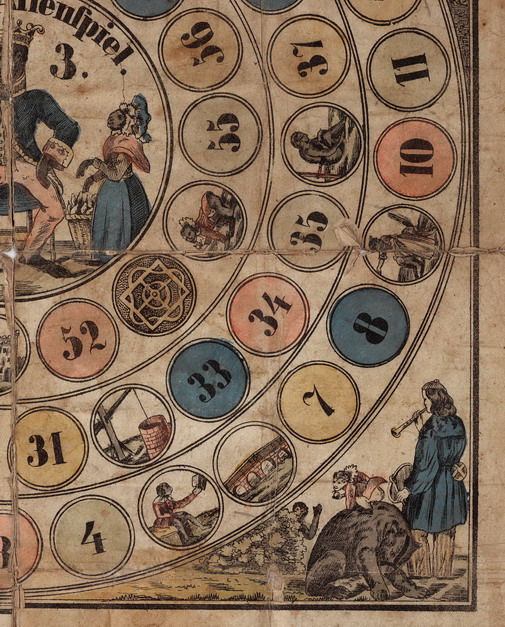 enſpiel.
3.
56
37
11
55
10
35
34
8
52
33
7
31
4
3